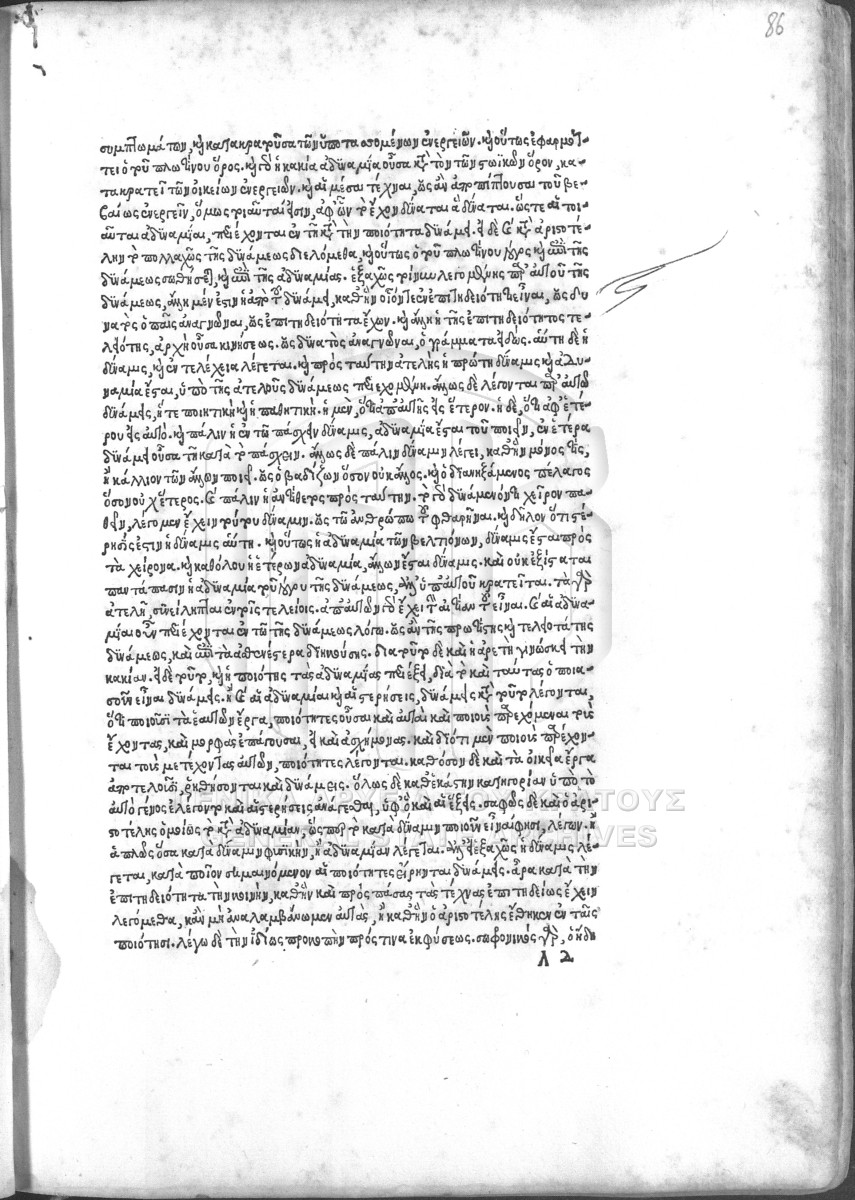 86
συμπτωμάτων, καὶ κατακρατοῦσα τῶν ὑποτασσομένων ἐνεργειῶν. καὶ οὕτως ἐφαρμότ-
τει ὁ τοῦ πλωτίνου ὅρος. καὶ γὰρ ἡ κακία ἀδυναμία οὖσα κατὰ τὸν τῶν στωϊκῶν ὅρον, κα-
τακρατεῖ τῶν οἰκείων ἐνεργειῶν. καὶ αἱ μέσαι τέχναι, ὡς ἂν ἀποπίπτουσαι τοῦ βε-
βαίως ἐνεργεῖν, ὅμως τοιαῦταί εἰσιν, ἀφ' ὧν τὸ ἔχον δύναται ἃ δύναται. ὥστε αἱ τοι-
αῦται ἀδυναμίαι, περιέχονται ἐν τῇ κατὰ τὴν ποιότητα δυνάμει. εἰ δὲ καὶ κατὰ ἀριστοτέ-
λην τὸ πολλαχῶς τῆς δυνάμεως διελόμεθα, καὶ οὕτως ὁ τοῦ πλωτίνου λόγος καὶ ἐπὶ τῆς
δυνάμεως σωθήσεται, καὶ ἐπὶ τῆς ἀδυναμίας. ἑξαχῶς τοίνυν λεγομένης παρ' αὐτοῦ τῆς
δυνάμεως, ἄλλη μέν ἐστιν ἡ ἀπὸ τοῦ δυνάμει, καθ' ἣν οἷόν τε ἐν ἐπιτηδειότητι εἶναι, ὡς δυ-
νατὸς ὁ παῖς ἀναγνῶναι, ὡς ἐπιτηδειότητα ἔχων. καὶ ἄλλη ἡ τῆς ἐπιτηδειότητος τε-
λειότης, ἀρχὴ οὖσα κινήσεως. ὡς δυνατὸς ἀναγνῶναι, ὁ γράμματα εἰδώς. αὕτη δὲ ἡ
δύναμις, καὶ ἐντελέχεια λέγεται. καὶ πρὸς ταύτην ἀτελὴς ἡ πρώτη δύναμις καὶ ἀδυ-
ναμία ἔσται, ὑπὸ τῆς ἀτελοῦς δυνάμεως περιεχομένη. ἄλλως δὲ λέγονται παρ' αὐτῷ
δυνάμεις, ἥ τε ποιητικὴ καὶ ἡ παθητική. ἡ μὲν, ὅτι ἀπ' αὐτῆς εἰς ἕτερον. ἡ δὲ, ὅτι ἀφ' ἑτέ-
ρου εἰς αὐτό. καὶ πάλιν ἡ ἐν τῷ πάσχειν δύναμις, ἀδυναμία ἔσται τοῦ ποιεῖν, ἐν ἑτέρα
δυνάμει οὖσα τῇ κατὰ τὸ πάσχειν. ἄλλως δὲ πάλιν δύναμιν λέγει, καθ' ἣν μόνος τις,
ἢ κάλλιον τῶν ἄλλων ποιεῖ. ὡς ὁ βαδίζων ὅσον οὐκ ἄλλος. καὶ ὁ διανηξάμενος πέλαγος
ὅσον οὐχ ἕτερος. καὶ πάλιν ἡ ἀντίθετος πρὸς ταύτην. τὸ γὰρ δυνάμενόν τι χεῖρον πα-
θεῖν, λέγομεν ἔχειν τούτου δύναμιν. ὡς τῷ ἀνθρώπῳ τοῦ φθαρῆναι. καὶ δῆλον ὅτι στέ-
ρησίς ἐστιν ἡ δύναμις αὕτη. καὶ οὕτως ἡ ἀδυναμία τῶν βελτιόνων, δύναμις ἔσται πρὸς
τὰ χείρονα. καὶ καθόλου ἡ ἑτέρων ἀδυναμία, ἄλλων ἔσται δύναμις. καὶ οὐκ ἐξίσταται
παντάπασιν ἡ ἀδυναμία τοῦ λόγου τῆς δυνάμεως, ἀλλ' ὑπ' αὐτοῦ κρατεῖται. τὰ γὰρ
ἀτελῆ, συνείληπται ἐν τοῖς τελείοις. ἀπ' αὐτῶν γὰρ ἔχει τὴν αἰτίαν τοῦ εἶναι. καὶ αἱ ἀδυνα-
μίαι οὖν περιέχονται ἐν τῷ τῆς δυνάμεως λόγῳ. ὡς ἂν τῆς πρωτίστης καὶ τελειοτάτης
δυνάμεως, καὶ ἐπὶ τὰ ἀσθενέστερα διηκούσης. διὰ τοῦτο δὲ καὶ ἡ ἀρετὴ γινώσκει τὴν
κακίαν. εἰ δὲ τοῦτο, καὶ ἡ ποιότης τὰς ἀδυναμίας περιέξει, διὰ τὸ καὶ ταύτας ὁποιασ-
οῦν εἶναι δυνάμεις. ἢ καὶ αἱ ἀδυναμίαι καὶ αἱ στερήσεις, δυνάμεις κατὰ τοῦτο λέγονται,
ὅτι ποιοῦσι τὰ ἑαυτῶν ἔργα, ποιότητες οὖσαι καὶ αὐταὶ καὶ ποιοὺς παρεχόμεναι τοὺς
ἔχοντας, καὶ μορφὰς ἐπάγουσαι, εἰ καὶ ἀσχήμονας. καὶ διότι μὲν ποιοὺς παρέχον-
ται τοὺς μετέχοντας αὐτῶν, ποιότητες λέγονται. καθόσον δὲ καὶ τὰ οἰκεῖα ἔργα
ἀποτελοῦσι, ῥηθήσονται καὶ δυνάμεις. ὅλως δὲ καθ' ἑκάστην κατηγορίαν ὑπὸ τὸ
αὐτὸ γένος ἐλέγοντο καὶ αἱ στερήσεις ἀνάγεσθαι, ὑφ' ὃ καὶ αἱ ἕξεις. σαφῶς δὲ καὶ ὁ ἀρι-
στοτέλης ὁμοίως τὸ κατὰ ἀδυναμίαν, ὥσπερ τὸ κατὰ δύναμιν ποιὸν εἶναί φησι, λέγων. ἢ
ἁπλῶς ὅσα κατὰ δύναμιν φυσικὴν, ἢ ἀδυναμίαν λέγεται. ἀλλ' εἰ ἑξαχῶς ἡ δύναμις λέ-
γεται, κατὰ ποῖον σημαινόμενον αἱ ποιότητες εἴρηνται δυνάμεις. ἆρα κατὰ τὴν
ἐπιτηδειότητα τὴν κοινὴν, καθ' ἣν καὶ πρὸς πάσας τὰς τέχνας ἐπιτηδείως ἔχειν
λεγόμεθα, κἂν μὴ ἀναλαμβάνωμεν αὐτὰς, ἢ καθ' ἣν ὁ ἀριστοτέλης ἔθηκεν ἐν ταῖς
ποιότησι. λέγω δὲ τὴν ἰδίως προνοπὴν πρός τινα ἐκ φύσεως. σωφρονικὸς γὰρ, ὁ ἤδη
Λ 2
ΓΕΝΙΚΑ ΑΡΧΕΙΑ ΤΟΥ ΚΡΑΤΟΥΣ
GENERAL STATE ARCHIVES